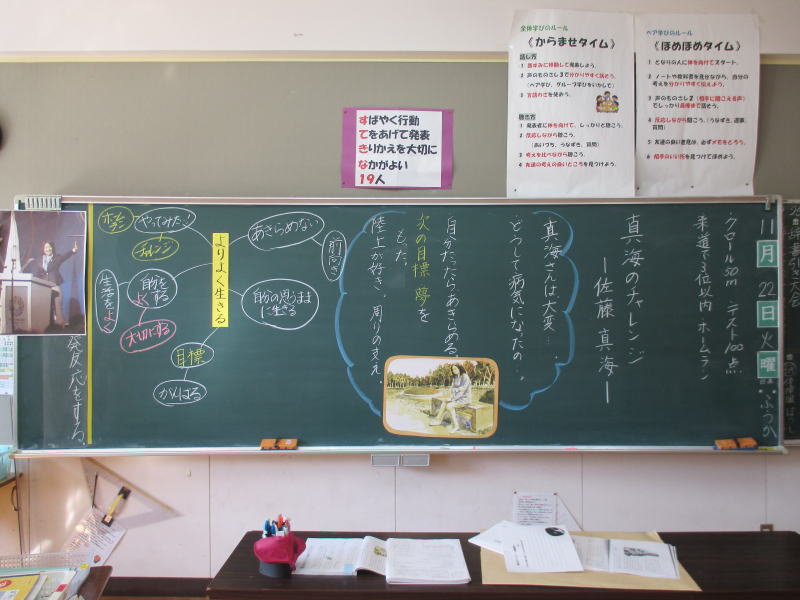 全体学びのルール
《からませタイム》
話し方
1 黒板みに移動して発表しよう。
2 声のものさし3で分かりやすく話そう。
(ペア学び、グループ学びをいかして)
3 言語わざを使おう。
聴き方
1 発表者に体を向けて、しっかりと聴こう。
2 反応しながら聴こう。
(あいづち、うなずき、質問)
3 考えを比べながら聴こう。
4 友達の考えの良いところを見つけよう。
ペア学びのルール
《ほめほめタイム》
1 となりの人に体を向けてスタート。
2 ノートや教科書を見せながら、自分の
考えを分かりやすく伝えよう。
3 声のものさし2(相手に聞こえる声)
でしっかり最後まで話そう。
4 反応しながら聴こう。(うなずき、返事、
質問)
5 友達の良い意見は、必ずメモをとろう。
6 相手のいい所を見つけてほめよう。
すばやく行動
てをあげて発表
きりかえを大切に
なかがよい
19人
11月22日火曜
ふつか
クロール50m テスト100点
柔道で3位以内 ホームラン
真海のチャレンジ
ー佐藤 真海ー
真海さんは大変…。
どうして病気になったの…。
自分だったらあきらめる。
次の目標 夢を
もった。
陸上が好き、周りの支え。
よりよく生きる
あきらめない
前向き
自分の思うままに生きる
目標
がんばる
やってみた!
チャレンジ
ホームラン
自分をよくする
大切にする
生活をよく
発反応をする。